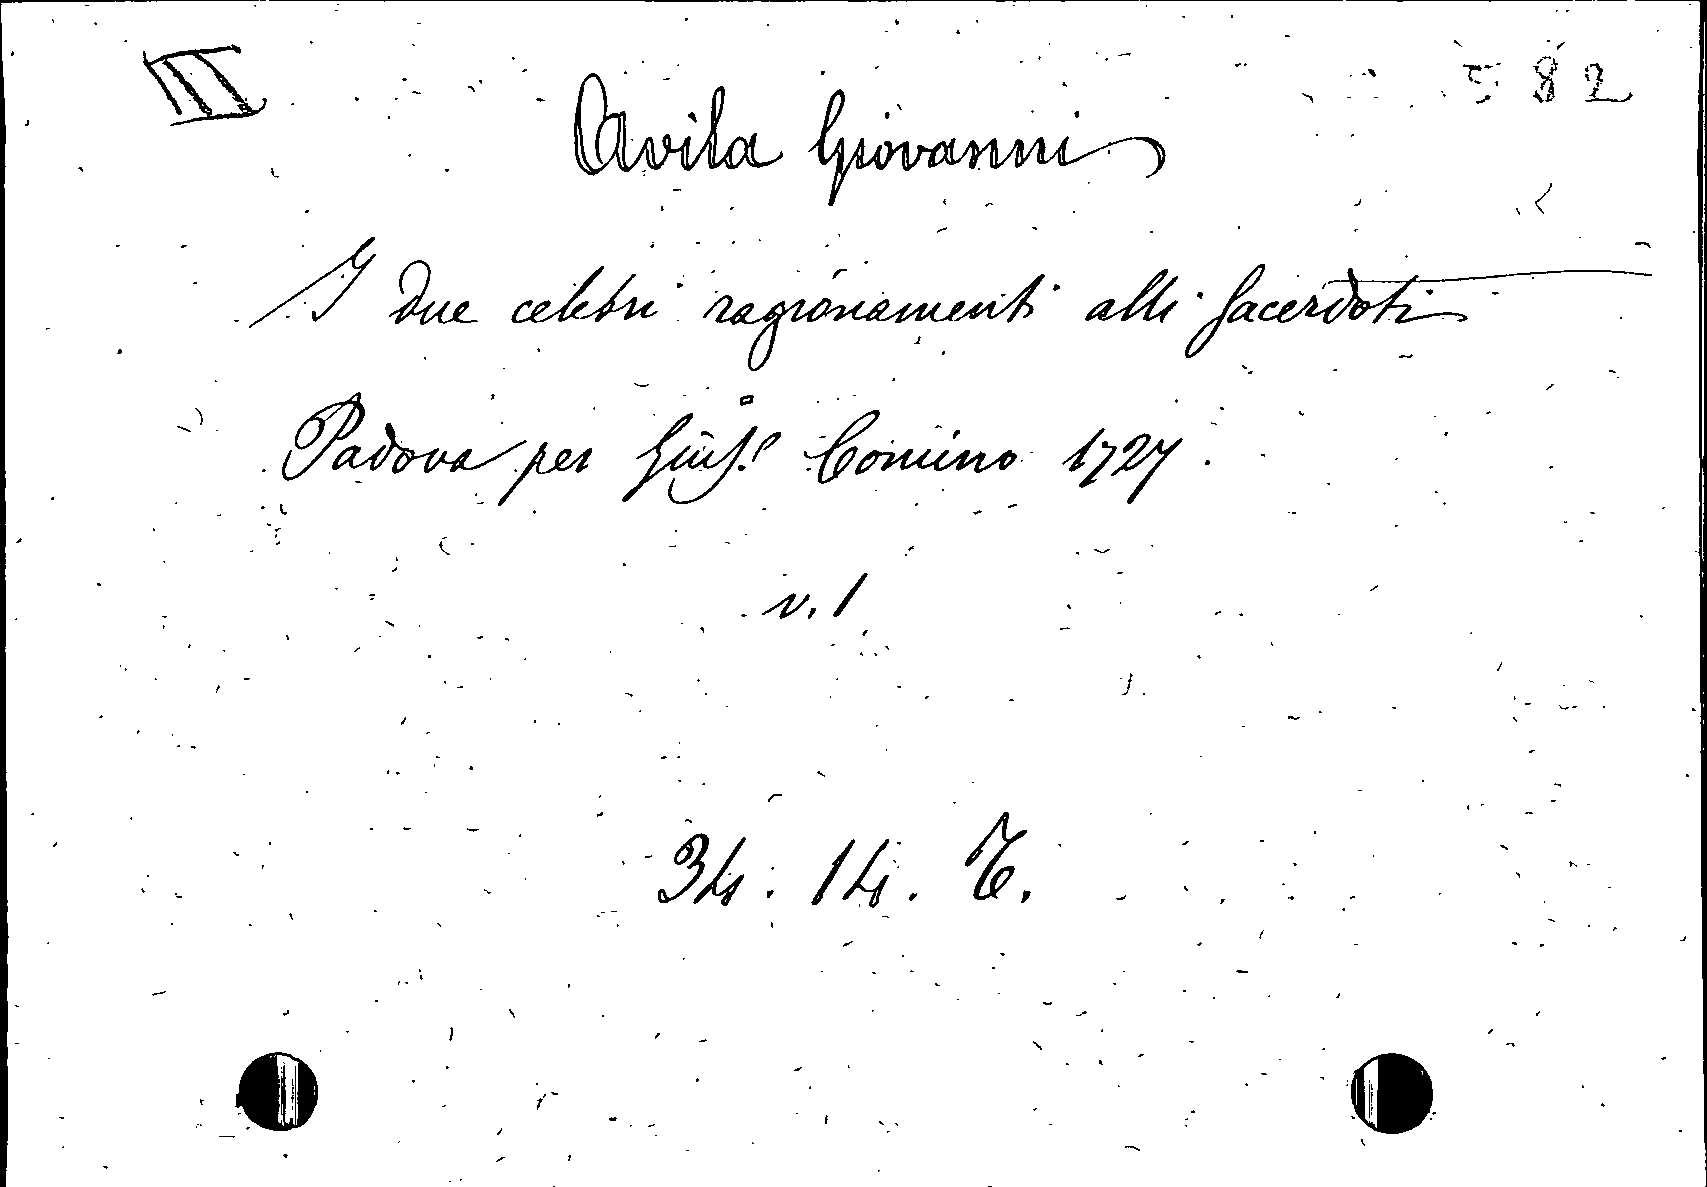 III
582
Avila Giovanni
I due celebri ragionamenti alli Sacerdoti
Padova per Gius.e Comino 1727
v. 1
34. 14. T.